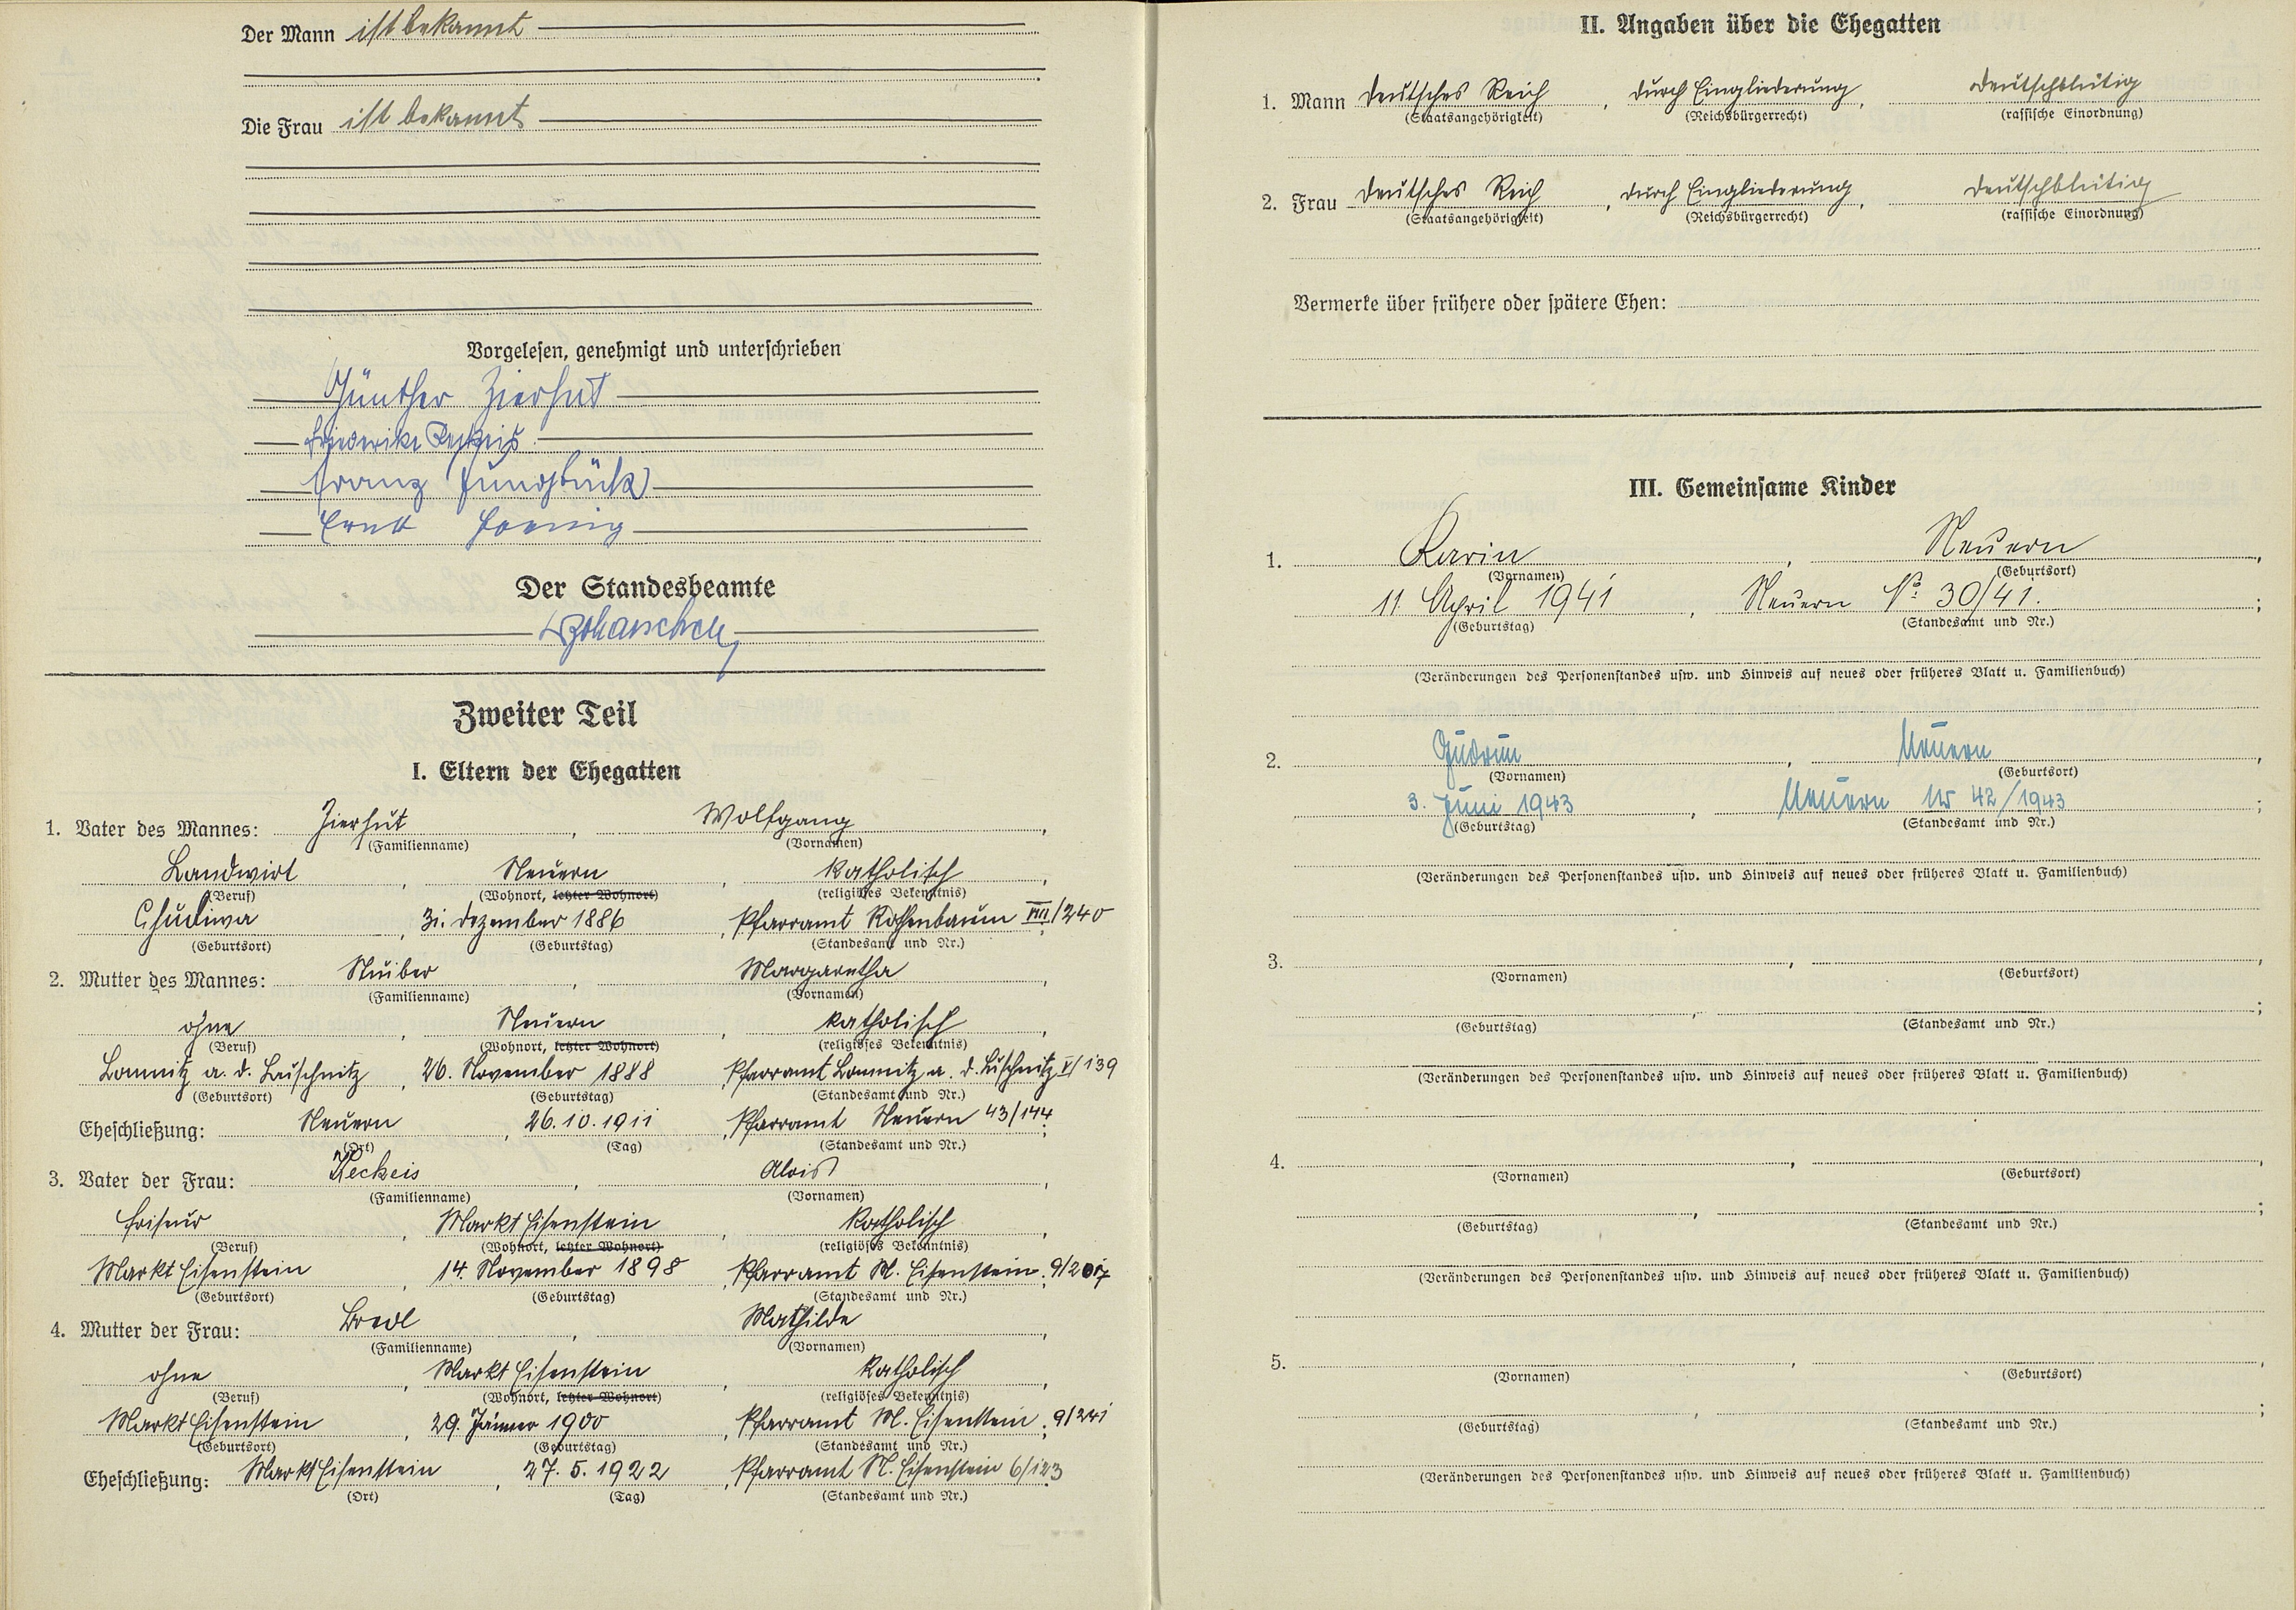 Der Mann ist bekannt
Die Frau ist bekannt
Vorgelesen, genehmigt und unterschrieben
Günther Zierhut
Friederike Reckeis
Franz
Ernst
Der Standesbeamte
Zweiter Teil
I. Eltern der Ehegatten
1. Vater des Mannes: Zierhut, Wolfgang,
(Familienname) (Vornamen)
Landwirt, Neuern, katholisch,
(Beruf) (Wohnort, letzter Wohnort) (religiöses Bekenntnis)
Chudiwa, 31. Dezember 1886, Pfarramt Rothenbaum VIII/240
(Geburtsort) (Geburtstag) (Standesamt und Nr.)
2. Mutter des Mannes: Stuiber, Margaretha,
(Familienname) (Vornamen)
ohne, Neuern, katholisch,
(Beruf) (Wohnort, letzter Wohnort) (religiöses Bekenntnis)
Lomnitz a. d. Lauschnitz, 26. November 1888, Pfarramt Lomnitz a. d. Luschnitz V/139
(Geburtsort) (Geburtstag) (Standesamt und Nr.)
Eheschließung: Neuern, 26.10.1911, Pfarramt Neuern 43/144.
(Ort) (Tag) (Standesamt und Nr.)
3. Vater der Frau: Reckeis, Alois,
(Familienname) (Vornamen)
Friseur, Markt Eisenstein, katholisch,
(Beruf) (Wohnort, letzter Wohnort) (religiöses Bekenntnis)
Markt Eisenstein, 14. November 1898, Pfarramt M. Eisenstein
(Geburtsort) (Geburtstag) (Standesamt und Nr.)
4. Mutter der Frau: Bredl, Mathilde,
(Familienname) (Vornamen)
ohne, Markt Eisenstein, katholisch,
(Beruf) (Wohnort, letzter Wohnort) (religiöses Bekenntnis)
Markt Eisenstein, 29. Jänner 1900, Pfarramt M. Eisenstein; 9/241
(Geburtsort) (Geburtstag) (Standesamt und Nr.)
Eheschließung: Markt Eisenstein, 27.5.1922, Pfarramt M. Eisenstein 6/123
(Ort) (Tag) (Standesamt und Nr.)
II. Angaben über die Ehegatten
1. Mann Deutsches Reich, durch Eingliederung, deutschblütig
(Staatsangehörigkeit) (Reichsbürgerrecht) (rassische Einordnung)
2. Frau Deutsches Reich, durch Eingliederung, deutschblütig
(Staatsangehörigkeit) (Reichsbürgerrecht) (rassische Einordnung)
Vermerke über frühere oder spätere Ehen:
III. Gemeinsame Kinder
1. Karin, Neuern,
(Vornamen) (Geburtsort)
11 April 1941, Neuern No 30/41.;
(Geburtstag) (Standesamt und Nr.)
(Veränderungen des Personenstandes usw. und Hinweis auf neues oder früheres Blatt u. Familienbuch)
2. Gudrun, Neuern,
(Vornamen) (Geburtsort)
3. Juni 1943, Neuern Nr 42/1943;
(Geburtstag) (Standesamt und Nr.)
(Veränderungen des Personenstandes usw. und Hinweis auf neues oder früheres Blatt u. Familienbuch)
3. , ,
(Vornamen) (Geburtsort)
, ;
(Geburtstag) (Standesamt und Nr.)
(Veränderungen des Personenstandes usw. und Hinweis auf neues oder früheres Blatt u. Familienbuch)
4. , ,
(Vornamen) (Geburtsort)
, ;
(Geburtstag) (Standesamt und Nr.)
(Veränderungen des Personenstandes usw. und Hinweis auf neues oder früheres Blatt u. Familienbuch)
5. , ,
(Vornamen) (Geburtsort)
, ;
(Geburtstag) (Standesamt und Nr.)
(Veränderungen des Personenstandes usw. und Hinweis auf neues oder früheres Blatt u. Familienbuch)